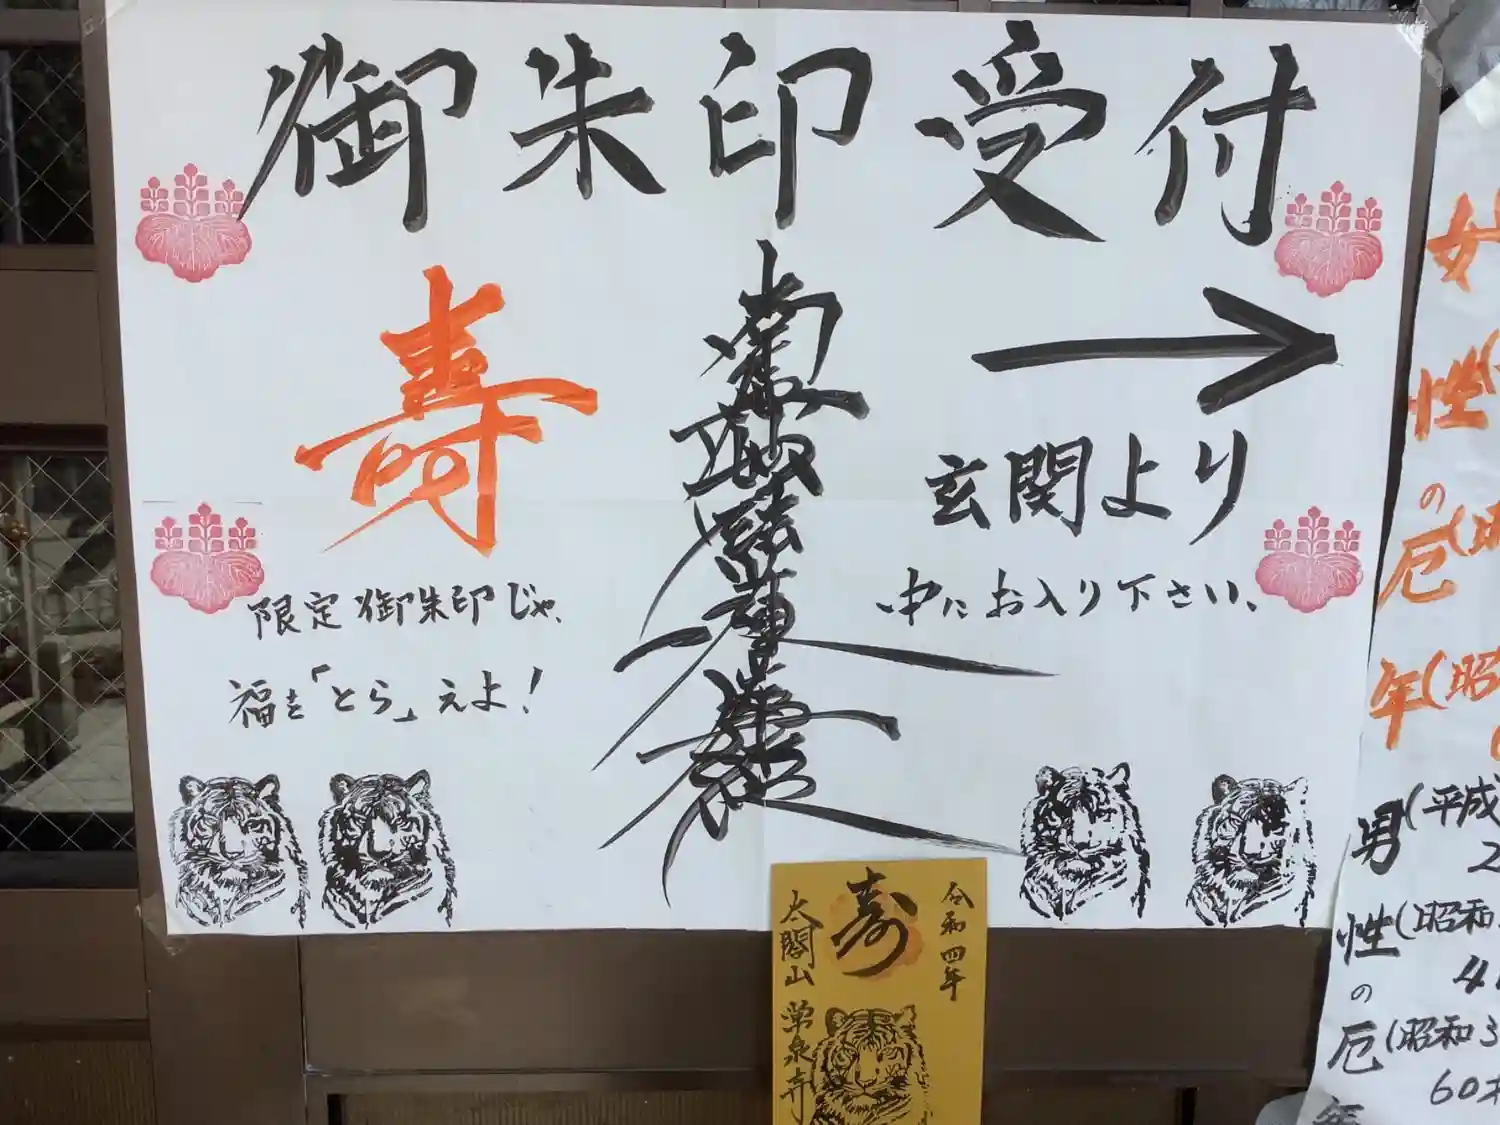 御朱印受付
寿
南無妙法蓮華経
玄関より
中にお入り下さい、
限定御朱印じゃ、
福を「とら」えよ!
令和四年
寿
太閤山
栄泉寺
性(
の
厄(昭
年(昭
男(平成
2
性(昭和
の
厄(昭和3
60才
年